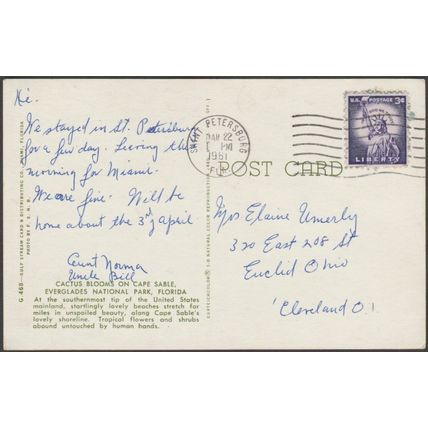 Hi.
We stayed in St. Petersburg
for a few day. Leaving this
morning for Miami.
We are fine. Will be
home about the 3rd april
Aunt Norma
Uncle Bill
CACTUS BLOOMS ON CAPE SABLE,
EVERGLADES NATIONAL PARK, FLORIDA
At the southernmost tip of the United States
mainland, startlingly lovely beaches stretch for
miles in unspoiled beauty, along Cape Sable's
lovely shoreline. Tropical flowers and shrubs
abound untouched by human hands.
G 468—GULF STREAM CARD & DISTRIBUTING CO., MIAMI, FLORIDA
PHOTO BY
SAINT PETERSBURG
22
PM
1961
FLA
U.S. POSTAGE 3¢
LIBERTY
POST CARD
Miss Elaine
320 East 208 St
Euclid Ohio
Cleveland O.